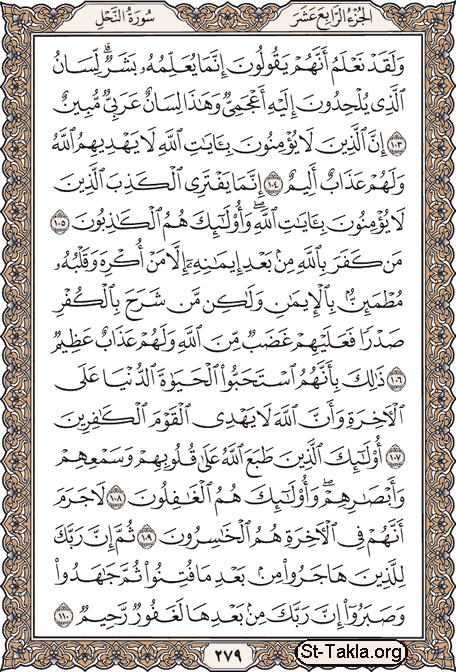 سُورَةُ النَّحۡلِ
الجُزءُ الرَّابِعَ عَشَرَ
وَلَقَدۡ نَعۡلَمُ أَنَّهُمۡ يَقُولُونَ إِنَّمَا يُعَلِّمُهُۥ بَشَرٞۗ لِّسَانُ
ٱلَّذِي يُلۡحِدُونَ إِلَيۡهِ أَعۡجَمِيّٞ وَهَٰذَا لِسَانٌ عَرَبِيّٞ مُّبِينٌ
١٠٣ إِنَّ ٱلَّذِينَ لَا يُؤۡمِنُونَ بِـَٔايَٰتِ ٱللَّهِ لَا يَهۡدِيهِمُ ٱللَّهُ
وَلَهُمۡ عَذَابٌ أَلِيمٌ ١٠٤ إِنَّمَا يَفۡتَرِي ٱلۡكَذِبَ ٱلَّذِينَ
لَا يُؤۡمِنُونَ بِـَٔايَٰتِ ٱللَّهِۖ وَأُوْلَٰٓئِكَ هُمُ ٱلۡكَٰذِبُونَ ١٠٥
مَن كَفَرَ بِٱللَّهِ مِنۢ بَعۡدِ إِيمَٰنِهِۦٓ إِلَّا مَنۡ أُكۡرِهَ وَقَلۡبُهُۥ
مُطۡمَئِنُّۢ بِٱلۡإِيمَٰنِ وَلَٰكِن مَّن شَرَحَ بِٱلۡكُفۡرِ
صَدۡرٗا فَعَلَيۡهِمۡ غَضَبٞ مِّنَ ٱللَّهِ وَلَهُمۡ عَذَابٌ عَظِيمٞ
١٠٦ ذَٰلِكَ بِأَنَّهُمُ ٱسۡتَحَبُّواْ ٱلۡحَيَوٰةَ ٱلدُّنۡيَا عَلَى
ٱلۡأٓخِرَةِ وَأَنَّ ٱللَّهَ لَا يَهۡدِي ٱلۡقَوۡمَ ٱلۡكَٰفِرِينَ
١٠٧ أُوْلَٰٓئِكَ ٱلَّذِينَ طَبَعَ ٱللَّهُ عَلَىٰ قُلُوبِهِمۡ وَسَمۡعِهِمۡ
وَأَبۡصَٰرِهِمۡۖ وَأُوْلَٰٓئِكَ هُمُ ٱلۡغَٰفِلُونَ ١٠٨ لَا جَرَمَ
أَنَّهُمۡ فِي ٱلۡأٓخِرَةِ هُمُ ٱلۡخَٰسِرُونَ ١٠٩ ثُمَّ إِنَّ رَبَّكَ
لِلَّذِينَ هَاجَرُواْ مِنۢ بَعۡدِ مَا فُتِنُواْ ثُمَّ جَٰهَدُواْ
وَصَبَرُوٓاْ إِنَّ رَبَّكَ مِنۢ بَعۡدِهَا لَغَفُورٞ رَّحِيمٞ ١١٠
٢٧٩
St-Takla.org